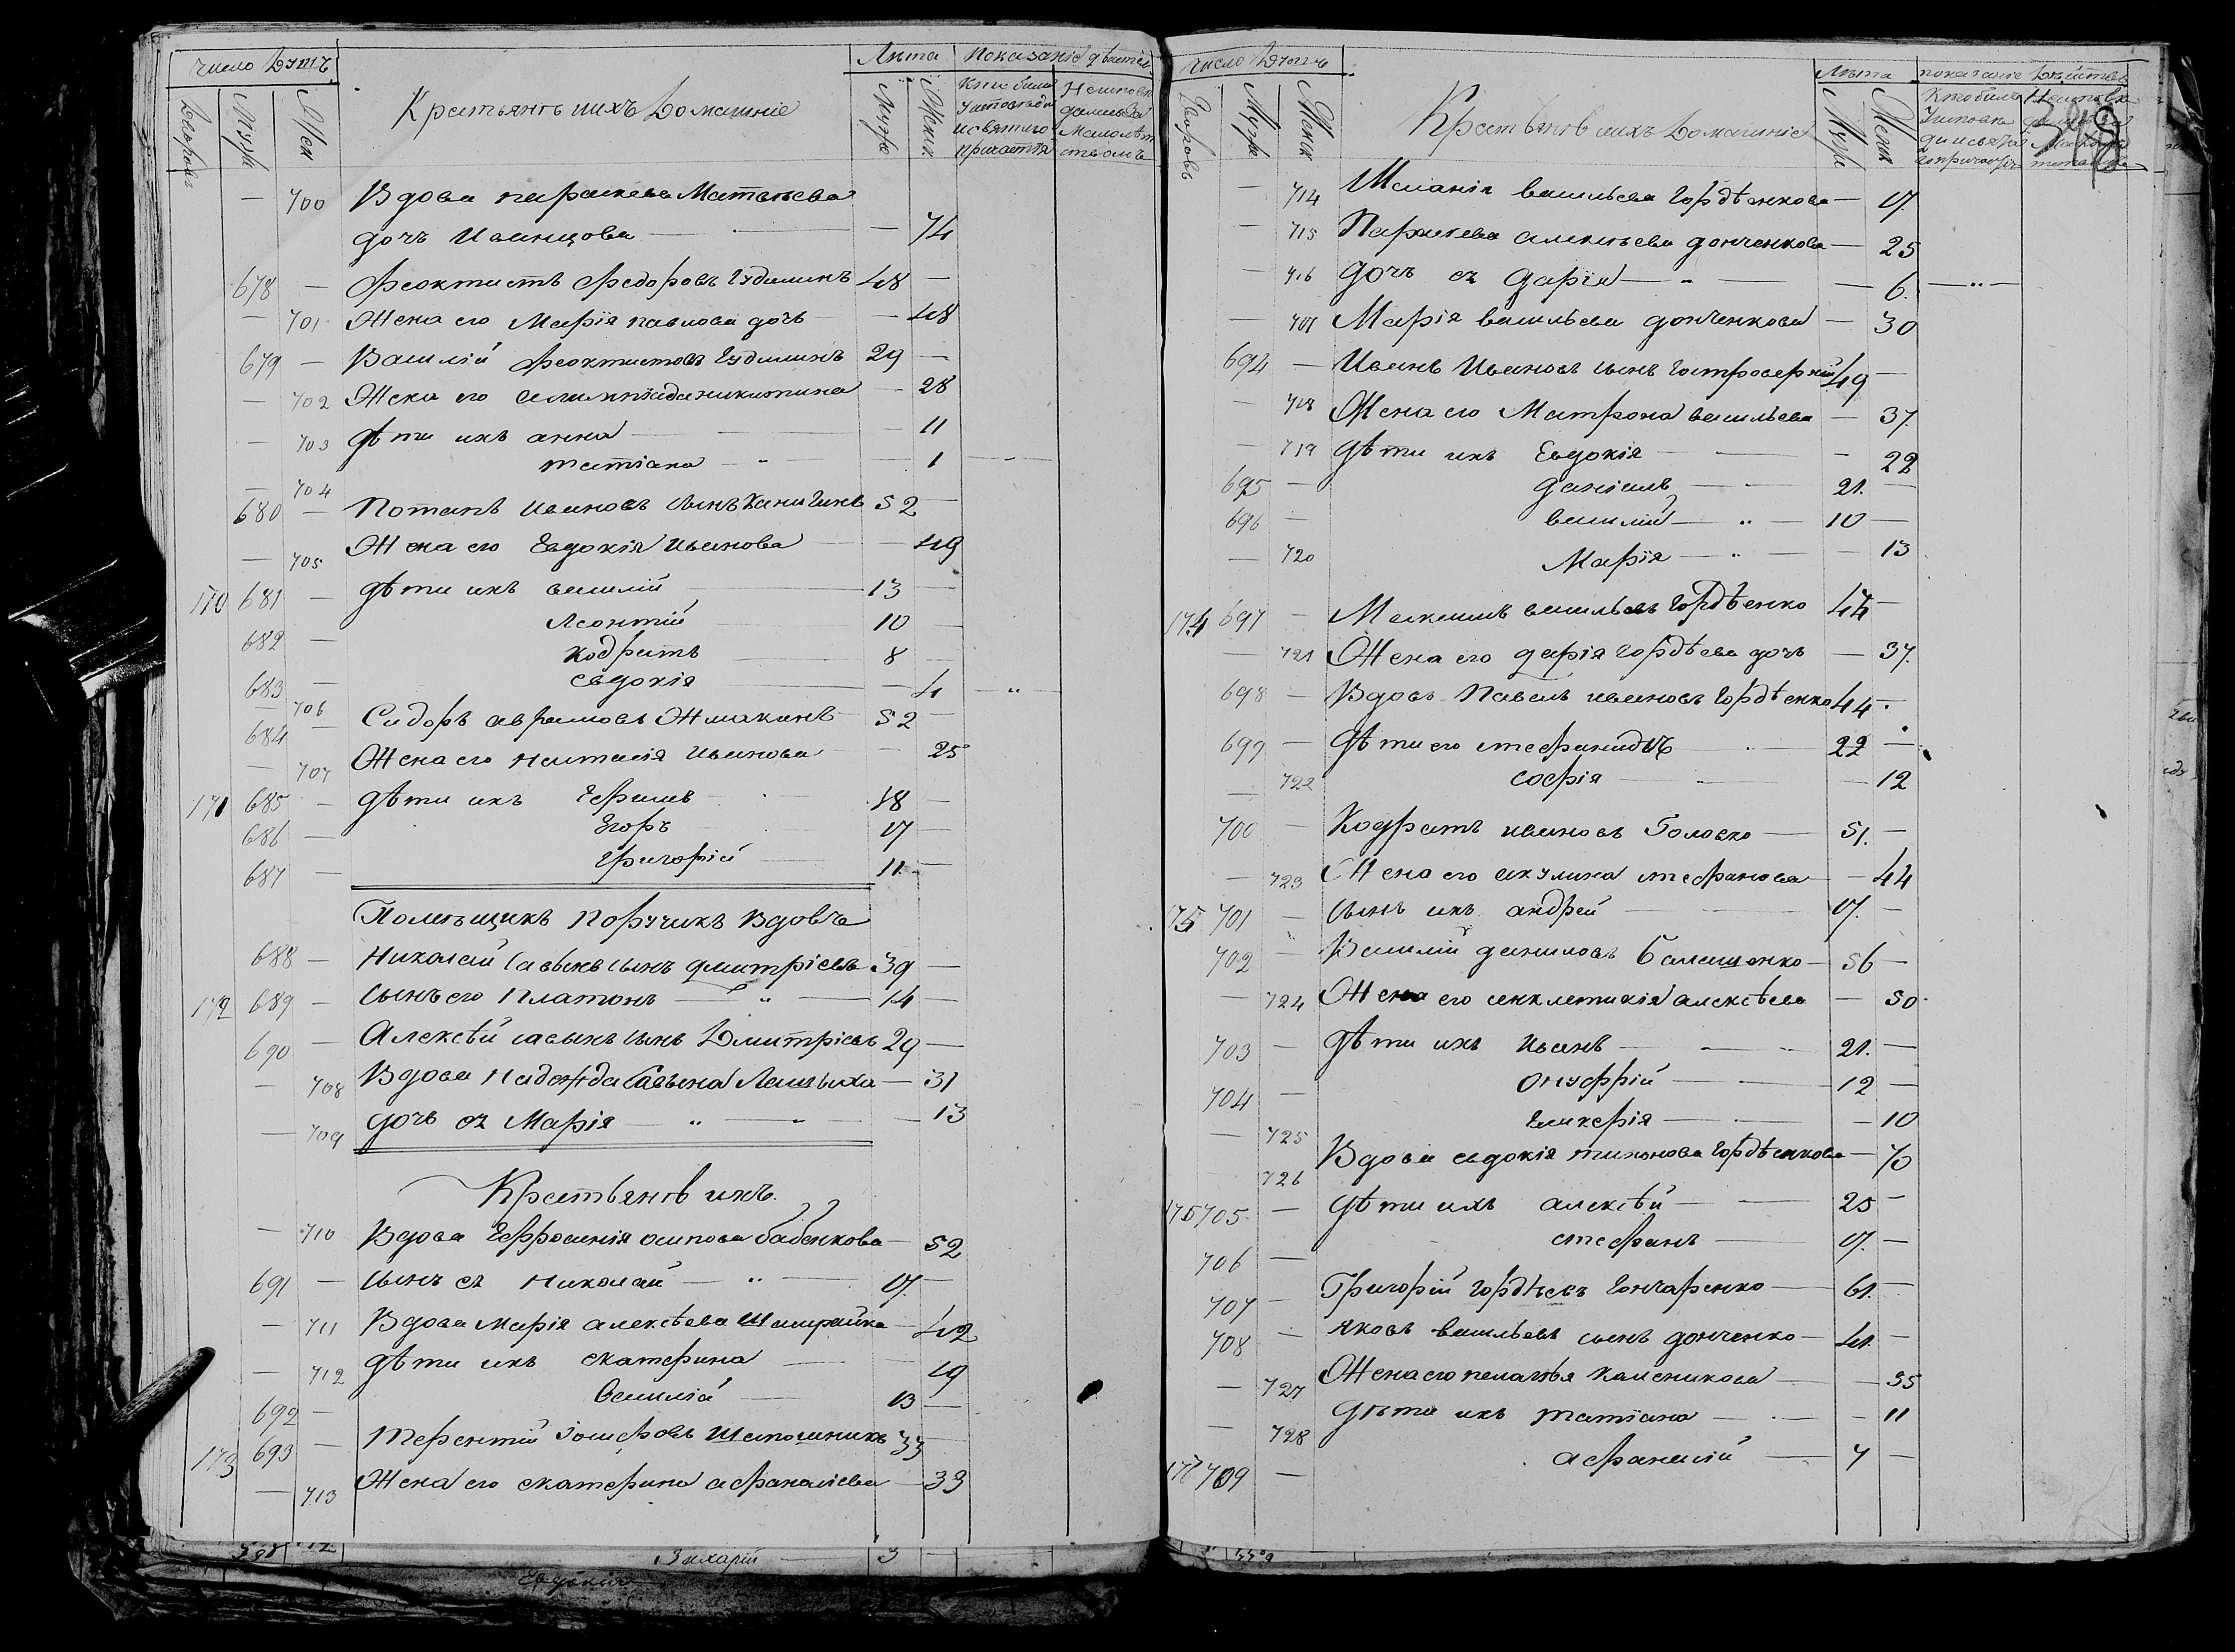 Число Душъ
Лѣта
Показаніе дѣйств
Дворовъ Мужс Жен
Крестьянѣ ихъ Домашніе
Мужс Женск
Кто былъ
у исповѣди
и святаго
причастія
700 Вдова параскева Матвѣева
дочь Иванцова 74
678 Феоктистъ Федоровъ Гудилинъ 48
701 Жена его Марія павлова дочь 48
679 Василій Феоктистовъ Гудилинъ 29
702 Жена его олимпіада никитина 28
703 дѣти ихъ анна 11
704 татіана 1
680 Потапъ ивановъ сынъ 52
705 Жена его Евдокія иванова 49
170 681 дѣти ихъ василій 13
682 Леонтій 10
683 кодратъ 8
706 евдокія 4
684 Сидоръ аврамовъ Жмакинъ 52
707 Жена его настасія иванова 25
171 685 дѣти ихъ Ефимъ 18
686 Егоръ 17
687 Григорій 11
Помѣщикъ Поручикъ вдовъ
688 Николай савынъ сынъ дмитріевъ 39
172 689 сынъ его Платонъ 14
690 Алексѣй савынъ сынъ Дмитріевъ 29
708 Вдова Надежда Савына 31
709 дочь ея Марія 13
Крестьянѣ ихъ
710 Вдова Ефросинія осипова бабенкова 52
691 сынъ ея николай 17
711 Вдова Марія алексѣева 42
712 дѣти ихъ екатерина 19
692 Василій 13
173 693 Терентій Іосифовъ Шапошникъ 33
713 Жена его екатерина афанасіева 33
Захарій 3
Евдокія
Число Душъ
Лѣта
показаніе Дѣйств
Дворовъ Мужс Женск
Крестьянѣ ихъ Домашніе
Мужс Женск
Кто былъ
714 Меланія васильева Гордѣенкова 17
715 Параскева алексѣева донченкова 25
716 дочь ея дарія 6
717 Марія васильева донченкова 30
694 Иванъ Ивановъ сынъ 49
718 Жена его Матрона васильева 37
719 дѣти ихъ Евдокія 22
695 даніилъ 21
696 василій 10
720 Марія 13
174 697 Максимъ васильевъ Гордѣенко 44
721 Жена его дарія Гордѣева дочь 37
698 Вдовъ Павелъ ивановъ Гордѣенко 44
699 дѣти его 22
722 софія 12
700 Кодратъ ивановъ Головко 51
723 Жена его акулина стефанова 44
175 701 сынъ ихъ андрей 17
702 Василій даниловъ Балашенко 56
724 Жена его синклетикія алексѣева 50
703 дѣти ихъ иванъ 21
704 онуфрій 12
725 Гликерія 10
726 Вдова евдокія тихонова Гордѣенкова 70
176 705 дѣти ихъ алексѣй 25
706 стефанъ 17
707 Григорій Гордѣевъ Гончаренко 61
708 яковъ васильевъ сынъ донченко 41
727 Жена его пелагѣя 35
728 дѣти ихъ татіана 11
177 709 афанасій 7